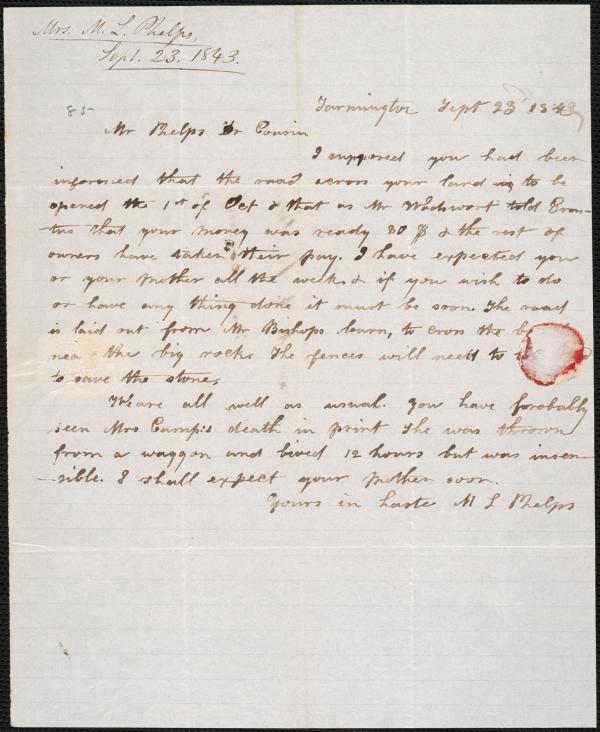 Mrs. M. L. Phelps,
Sept. 23. 1843.
85
Farmington Sept 23 1843
Mr Phelps Dr Cousin
I supposed you had been
informed that the road across your land is to be
opened the 1st of Oct & that as Mr Wadswort told Eras-
tus that your money was ready 80 $ & the rest of
owners have taken their pay. I have expected you
or your Mother all the week & if you wish to do
or have any thing done it must be soon. The road
is laid out from Mr Bishops barn, to cross the
near the big rock. The fences will need to
to save the stone.
We are all well as usual. You have probably
seen Mrs Camp's death in print She was thrown
from a waggon and lived 12 hours but was insen-
-sible. I shall expect your Mother soon.
Yours in haste M L Phelps